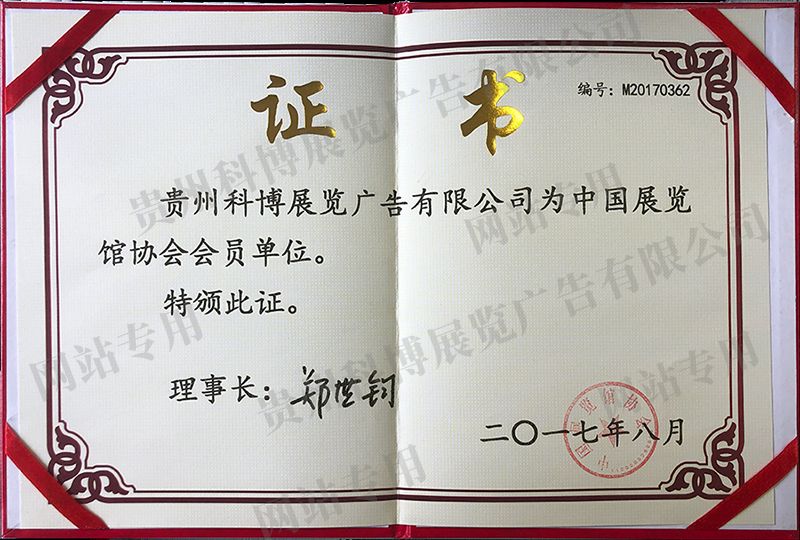 证 书
编号：M20170362
贵州科博展览广告有限公司为中国展览
馆协会会员单位。
特颁此证。
理事长：郑世钧
二〇一七年八月
中国展览馆协会
贵州科博展览广告有限公司
网站专用
贵州科博展览广告有限公司
网站专用
网站专用
网站专用